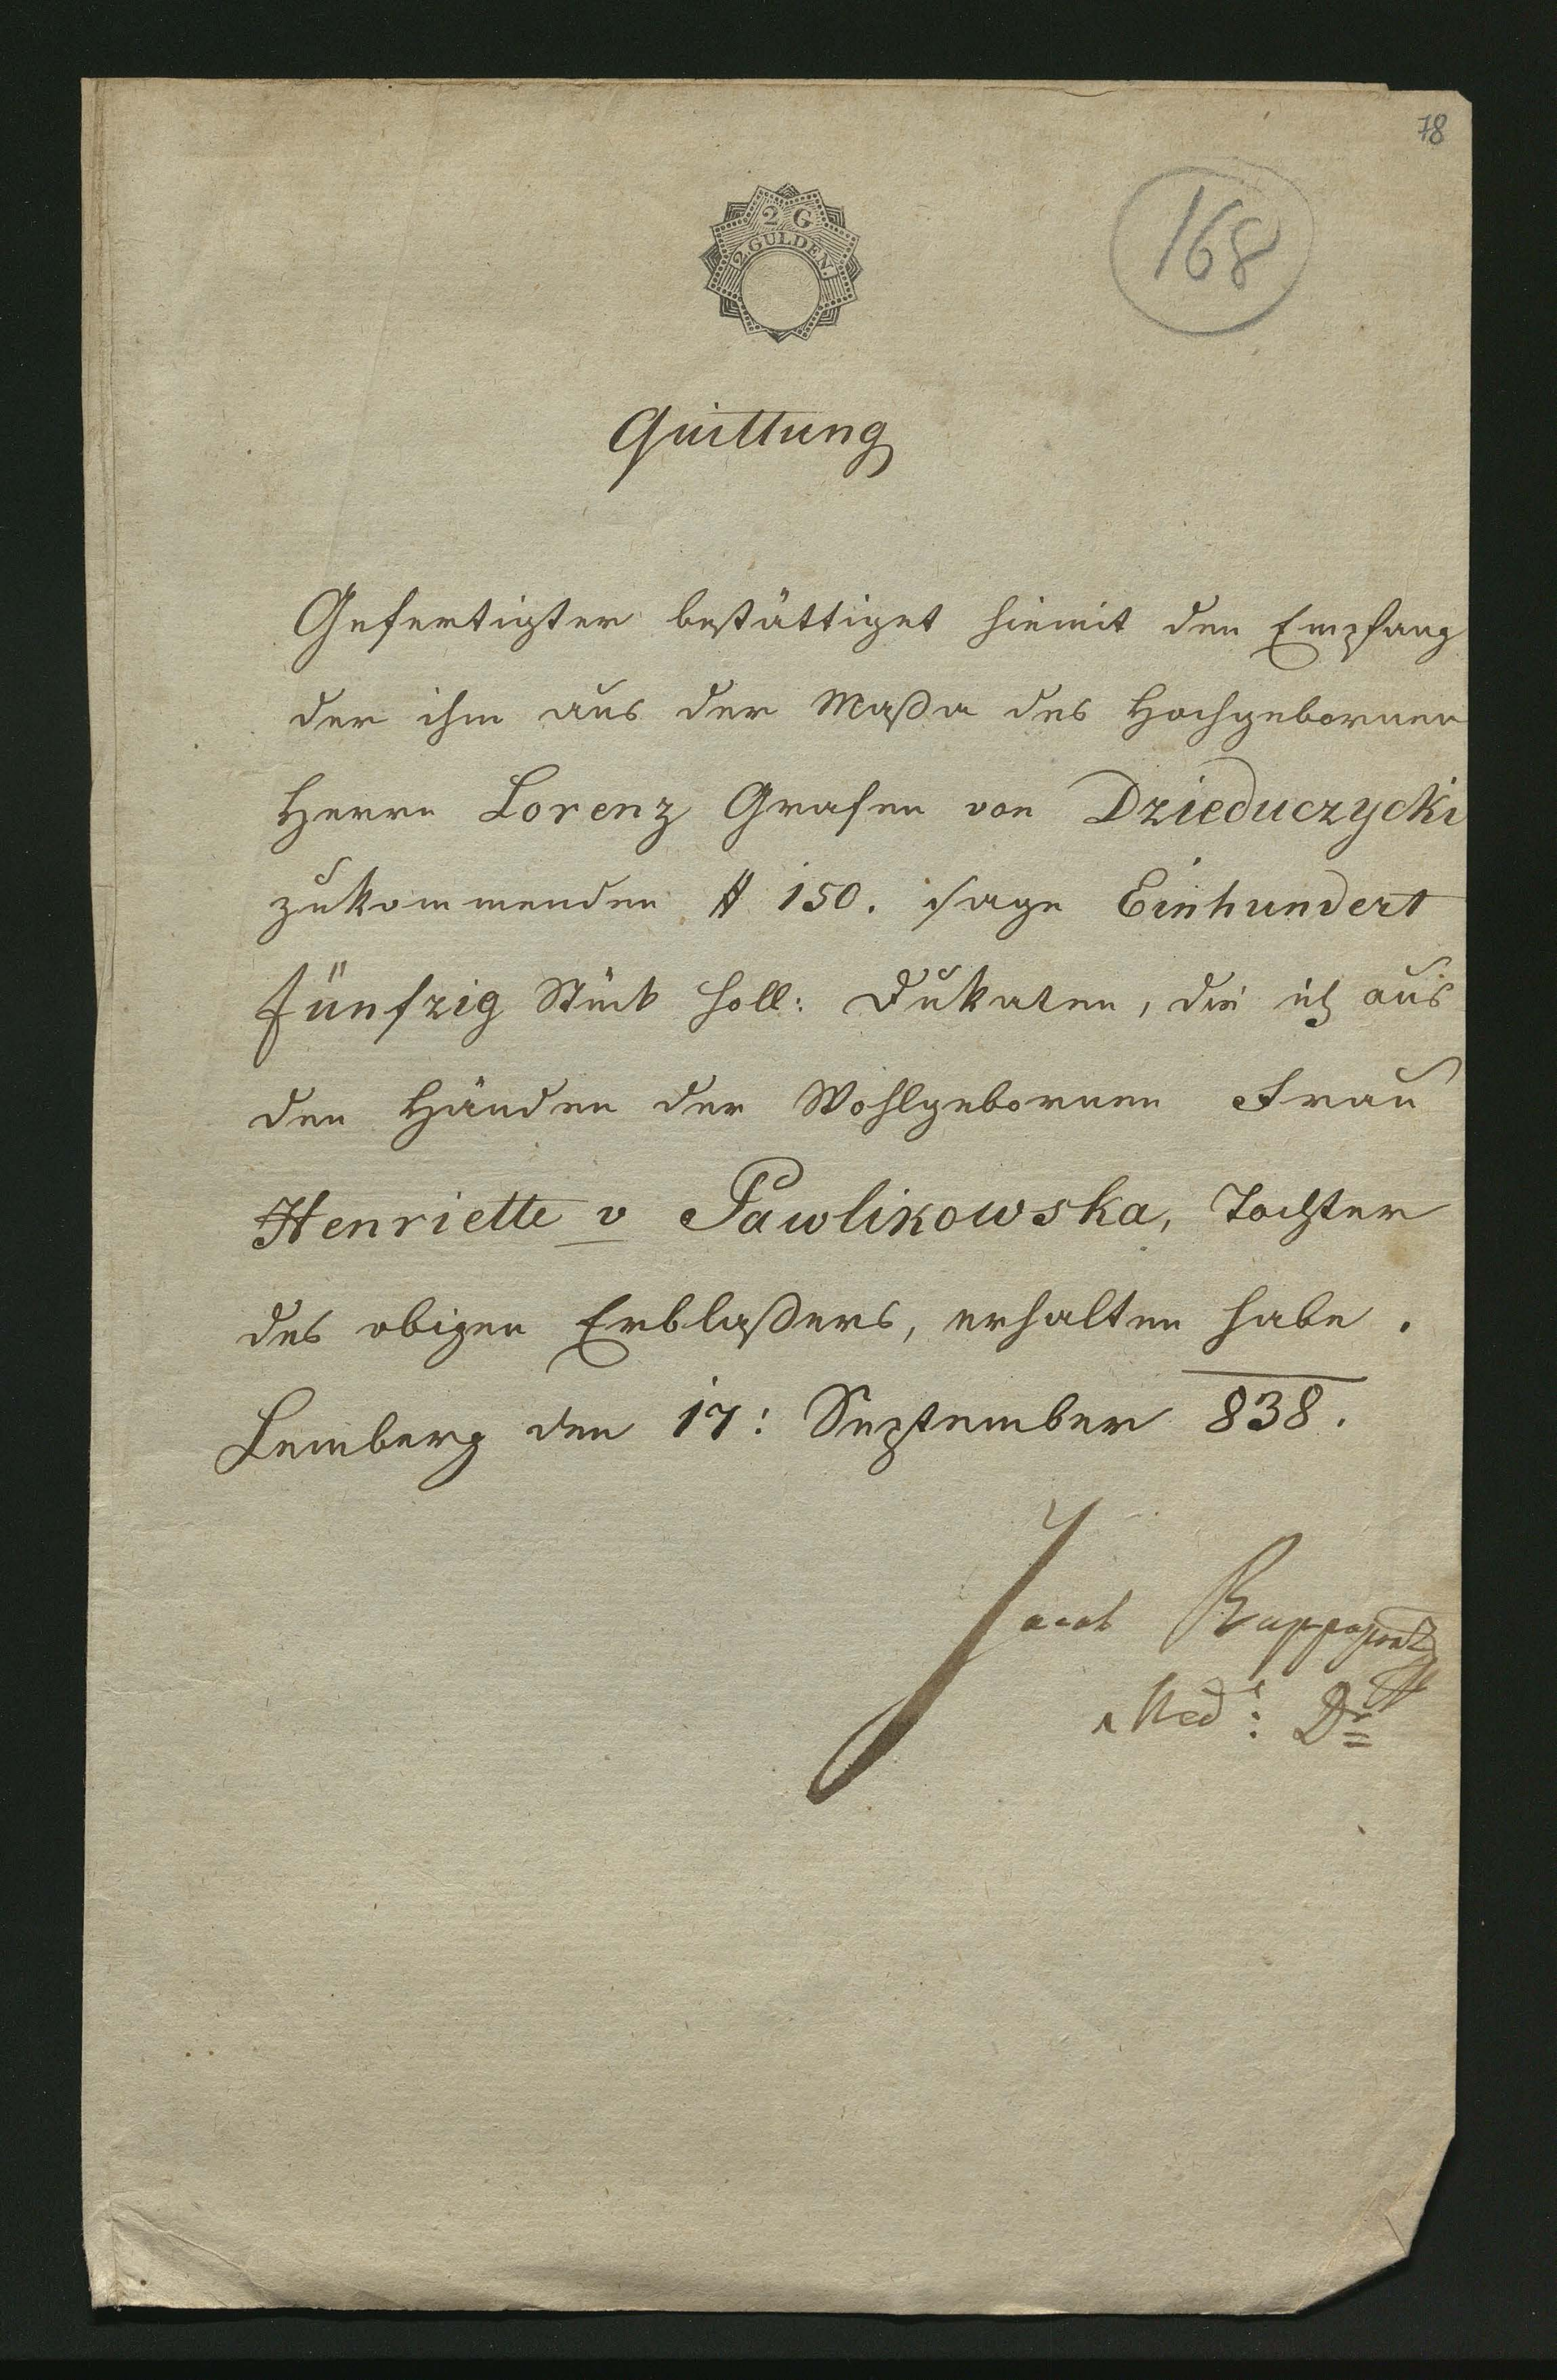 78
168
2 G
2 GULDEN
Quittung
Gefertigter bestättiget hiemit den Empfang
der ihm aus der Maßa des Hochgebornen
Herrn Lorenz Grafen von Dzieduczycki
zukommenden # 150. sage Einhundert
fünfzig Stück holl: Dukaten, die ich aus
den Händen der Wohlgebornen Frau
Henriette v Pawlikowska, Tochter
des obigen Erblaßers, erhalten habe.
Lemberg den 17: September 838.
Jacob Rappaport
Med: Dr